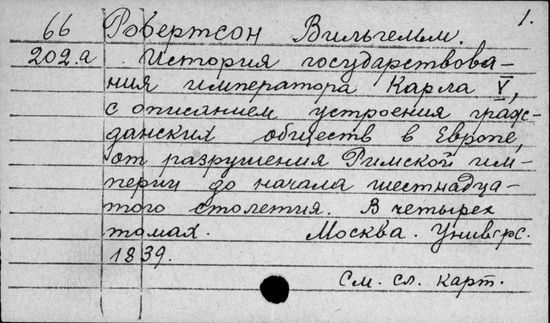 1.
66 Робертсон Вильгельм.
202.а. История государствова-
ния императора Карла V,
с описанием устроения граж-
данских обществ в Европе,
от разрушения Римской им-
перии до начала шестнадца-
того столетия. В четырех
томах. Москва. Универс.
1839.
См. сл. карт.